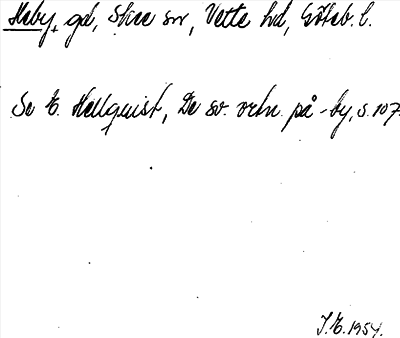 Heby, gd, Skee sn, Vette hd, Göteb. l.
Se E. Hellquist, De sv. ortn. på -by, s. 107.
J.E. 1954.